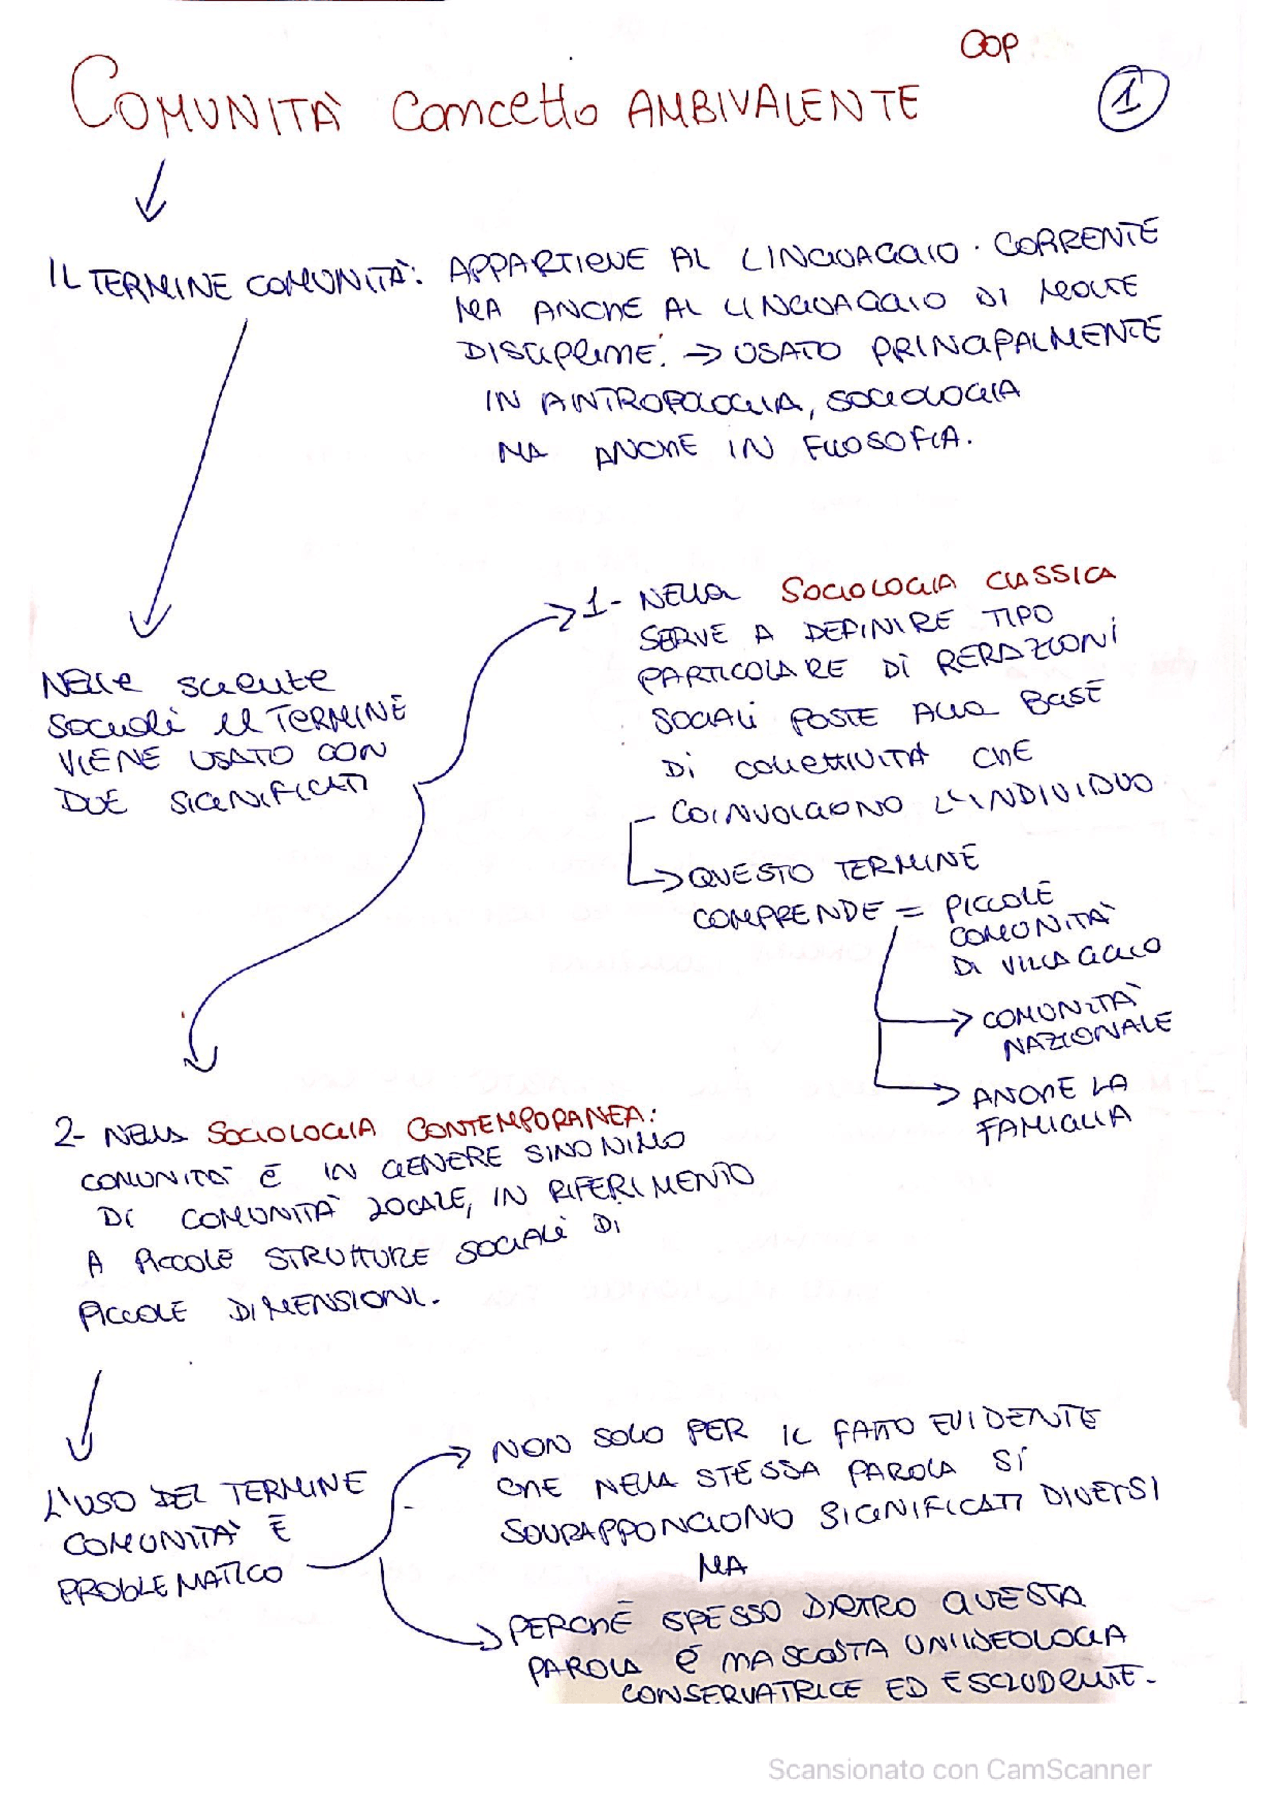 COP
1
COMUNITÀ concetto AMBIVALENTE
IL TERMINE COMUNITÀ:
APPARTIENE AL LINGUAGGIO CORRENTE
MA ANCHE AL LINGUAGGIO DI MOLTE
DISCIPLINE. → USATO PRINCIPALMENTE
IN ANTROPOLOGIA, SOCIOLOGIA
MA ANCHE IN FILOSOFIA.
NELLE SCIENZE
SOCIALI IL TERMINE
VIENE USATO CON
DUE SIGNIFICATI
1- NELLA SOCIOLOGIA CLASSICA
SERVE A DEFINIRE TIPO
PARTICOLARE DI RERAZIONI
SOCIALI POSTE ALLA BASE
DI COLLETTIVITÀ CHE
COINVOLGONO L'INDIVIDUO
QUESTO TERMINE
COMPRENDE = PICCOLE
COMUNITÀ
DI VILLAGGIO
COMUNITÀ
NAZIONALE
ANCHE LA
FAMIGLIA
2- NELLA SOCIOLOGIA CONTEMPORANEA:
COMUNITÀ È IN GENERE SINONIMO
DI COMUNITÀ LOCALE, IN RIFERIMENTO
A PICCOLE STRUTTURE SOCIALI DI
PICCOLE DIMENSIONI.
L'USO DEL TERMINE
COMUNITÀ È
PROBLEMATICO
NON SOLO PER IL FATTO EVIDENTE
CHE NELLA STESSA PAROLA SI
SOVRAPPONGONO SIGNIFICATI DIVERSI
MA
PERCHÈ SPESSO DIETRO QUESTA
PAROLA È MASCOSTA UN'IDEOLOGIA
CONSERVATRICE ED ESCLUDENTE.
Scansionato con CamScanner